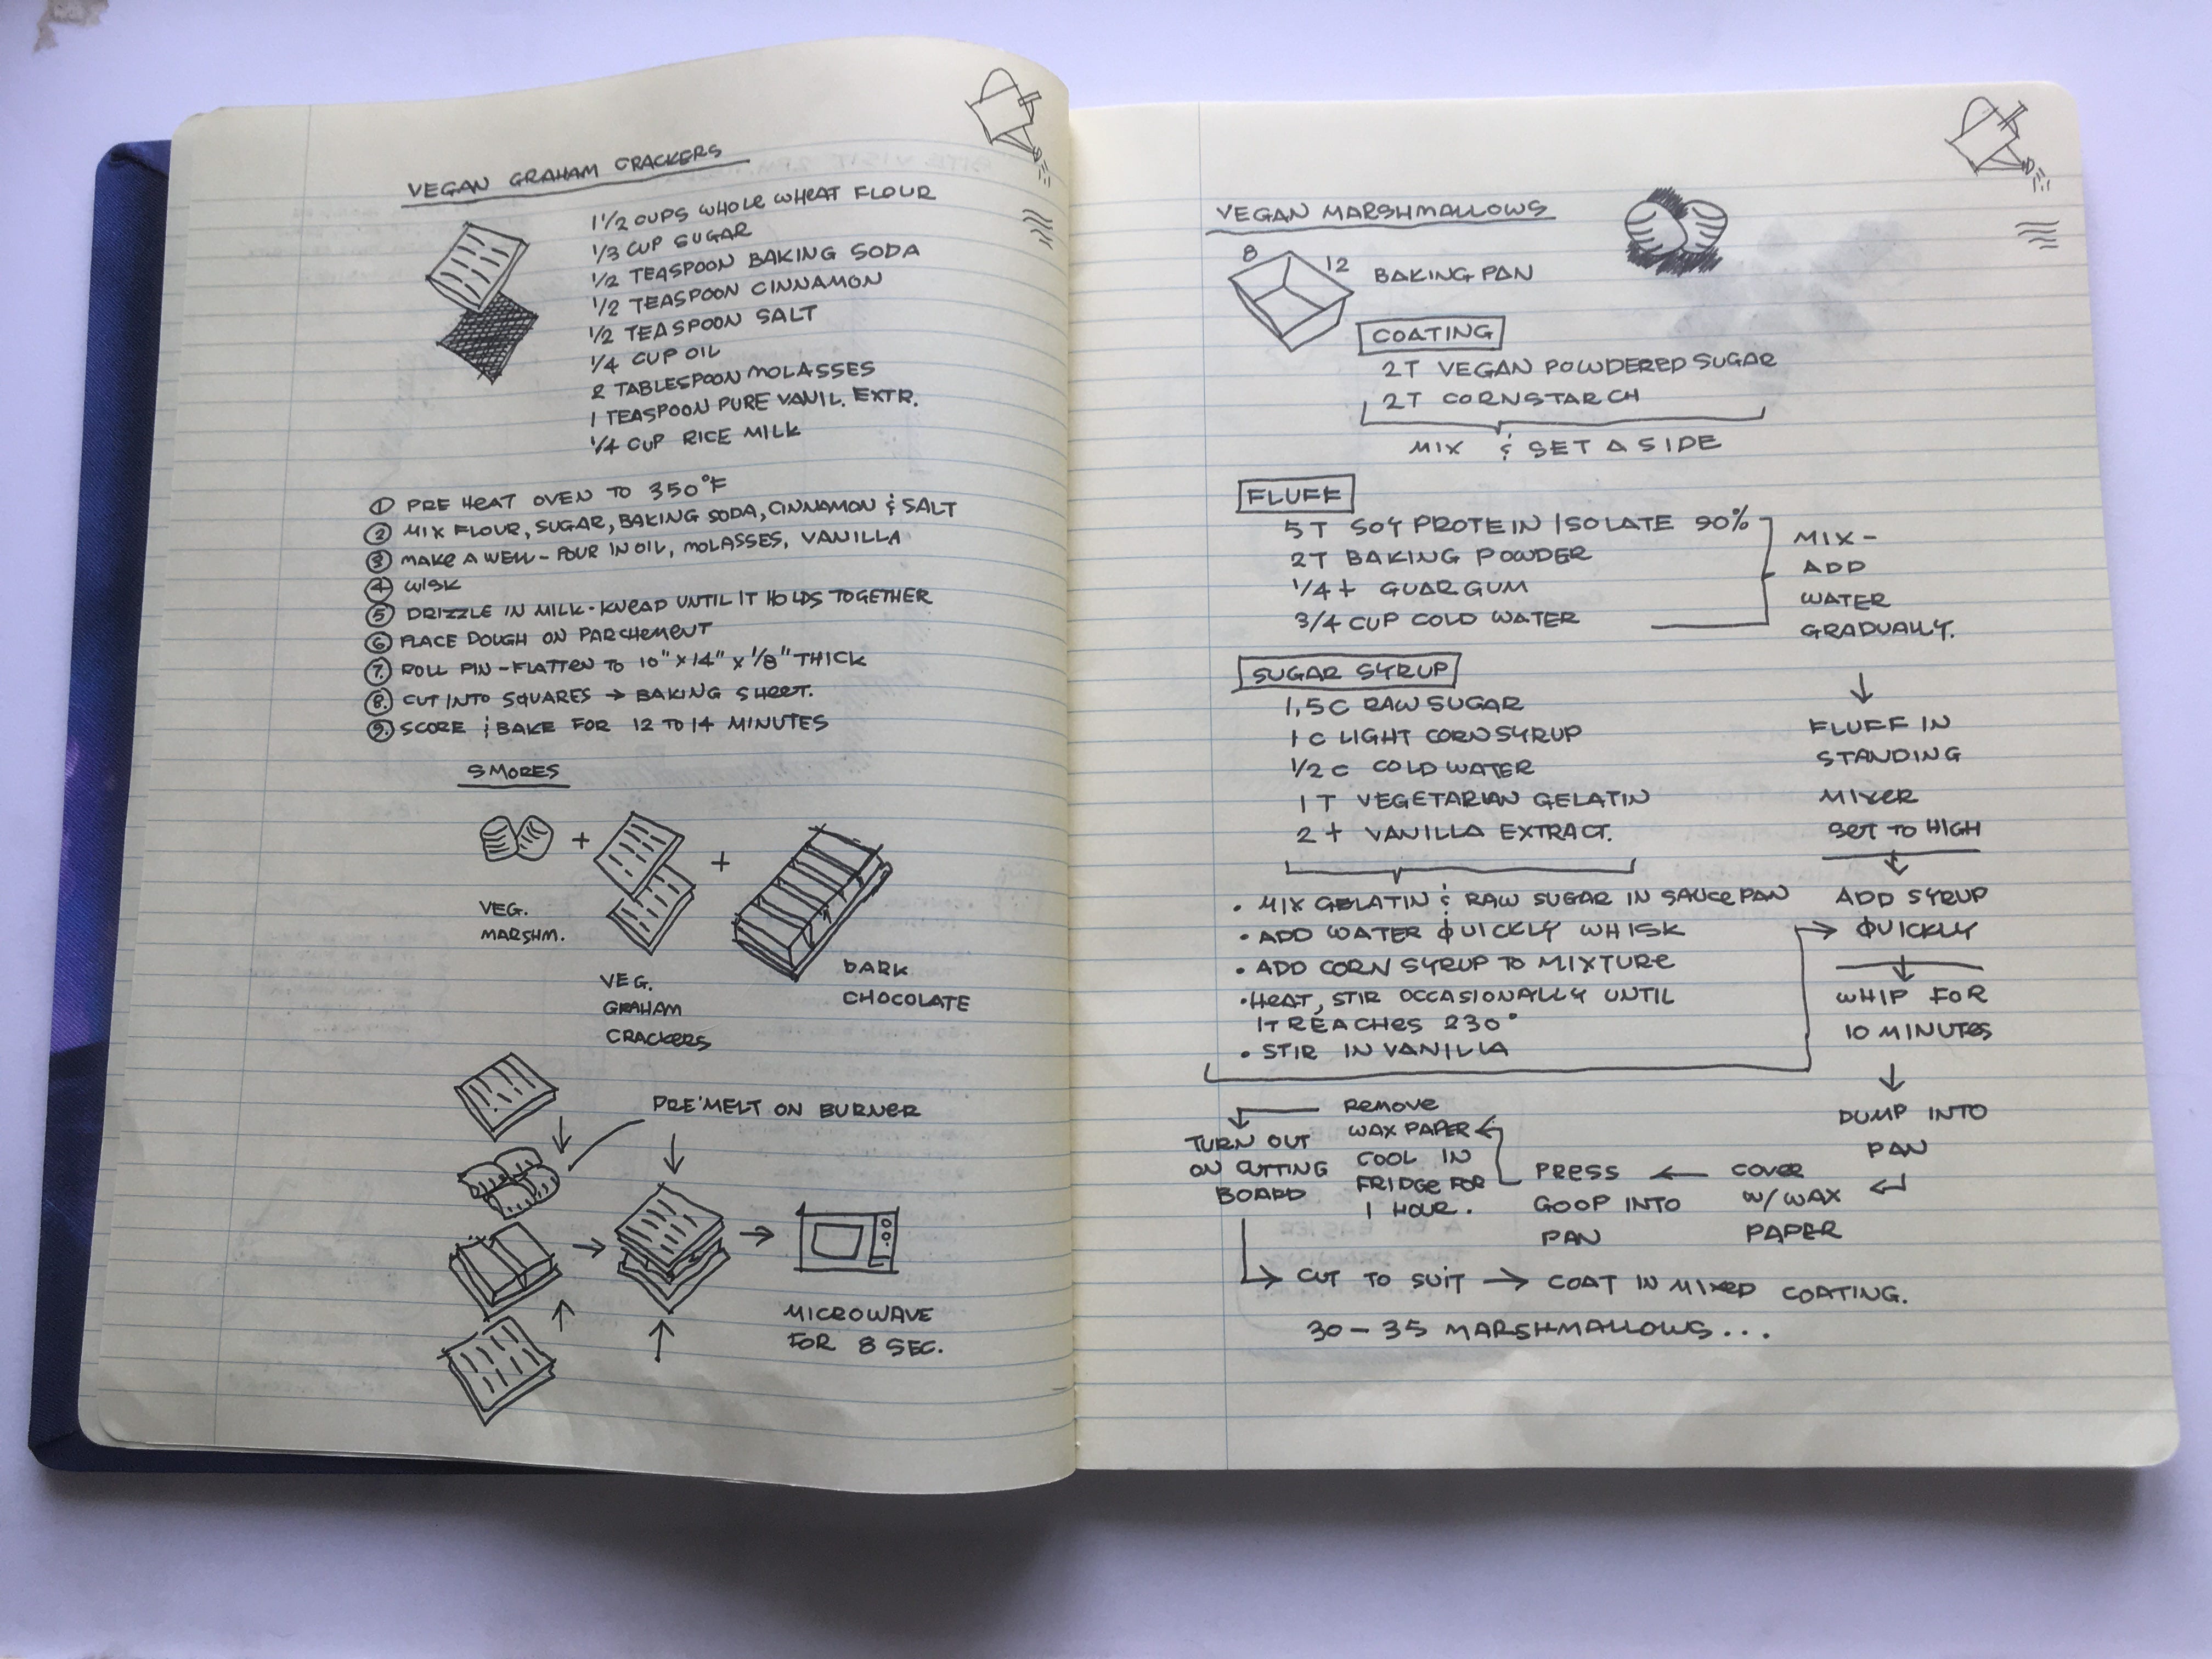 VEGAN GRAHAM CRACKERS
1 1/2 CUPS WHOLE WHEAT FLOUR
1/3 CUP SUGAR
1/2 TEASPOON BAKING SODA
1/2 TEASPOON CINNAMON
1/2 TEASPOON SALT
1/4 CUP OIL
2 TABLESPOON MOLASSES
1 TEASPOON PURE VANIL. EXTR.
1/4 CUP RICE MILK
① PRE HEAT OVEN TO 350°F
② MIX FLOUR, SUGAR, BAKING SODA, CINNAMON & SALT
③ MAKE A WELL - POUR IN OIL, MOLASSES, VANILLA
④ WISK
⑤ DRIZZLE IN MILK - KNEAD UNTIL IT HOLDS TOGETHER
⑥ PLACE DOUGH ON PARCHEMENT
⑦ ROLL PIN - FLATTEN TO 10" X 14" X 1/8" THICK
⑧ CUT INTO SQUARES → BAKING SHEET.
⑨ SCORE & BAKE FOR 12 TO 14 MINUTES
SMORES
+
+
VEG.
MARSHM.
VEG.
GRAHAM
CRACKERS
DARK
CHOCOLATE
PRE'MELT ON BURNER
MICROWAVE
FOR 8 SEC.
VEGAN MARSHMALLOWS
8
12
BAKING PAN
COATING
2T VEGAN POWDERED SUGAR
2T CORNSTARCH
MIX & SET ASIDE
FLUFF
5T SOY PROTEIN ISOLATE 90%
2T BAKING POWDER
1/4 t GUAR GUM
3/4 CUP COLD WATER
MIX -
ADD
WATER
GRADUALLY.
↓
FLUFF IN
STANDING
MIXER
SET TO HIGH
↓
ADD SYRUP
QUICKLY
↓
WHIP FOR
10 MINUTES
↓
DUMP INTO
PAN
SUGAR SYRUP
1,5C RAW SUGAR
1 C LIGHT CORN SYRUP
1/2 C COLD WATER
1 T VEGETARIAN GELATIN
2 t VANILLA EXTRACT.
• MIX GELATIN & RAW SUGAR IN SAUCE PAN
• ADD WATER QUICKLY WHISK
• ADD CORN SYRUP TO MIXTURE
• HEAT, STIR OCCASIONALLY UNTIL
IT REACHES 230°
• STIR IN VANILLA
COVER
W/ WAX
PAPER
PRESS
GOOP INTO
PAN
REMOVE
WAX PAPER
COOL IN
FRIDGE FOR
1 HOUR.
TURN OUT
ON CUTTING
BOARD
CUT TO SUIT → COAT IN MIXED COATING.
30 - 35 MARSHMALLOWS...